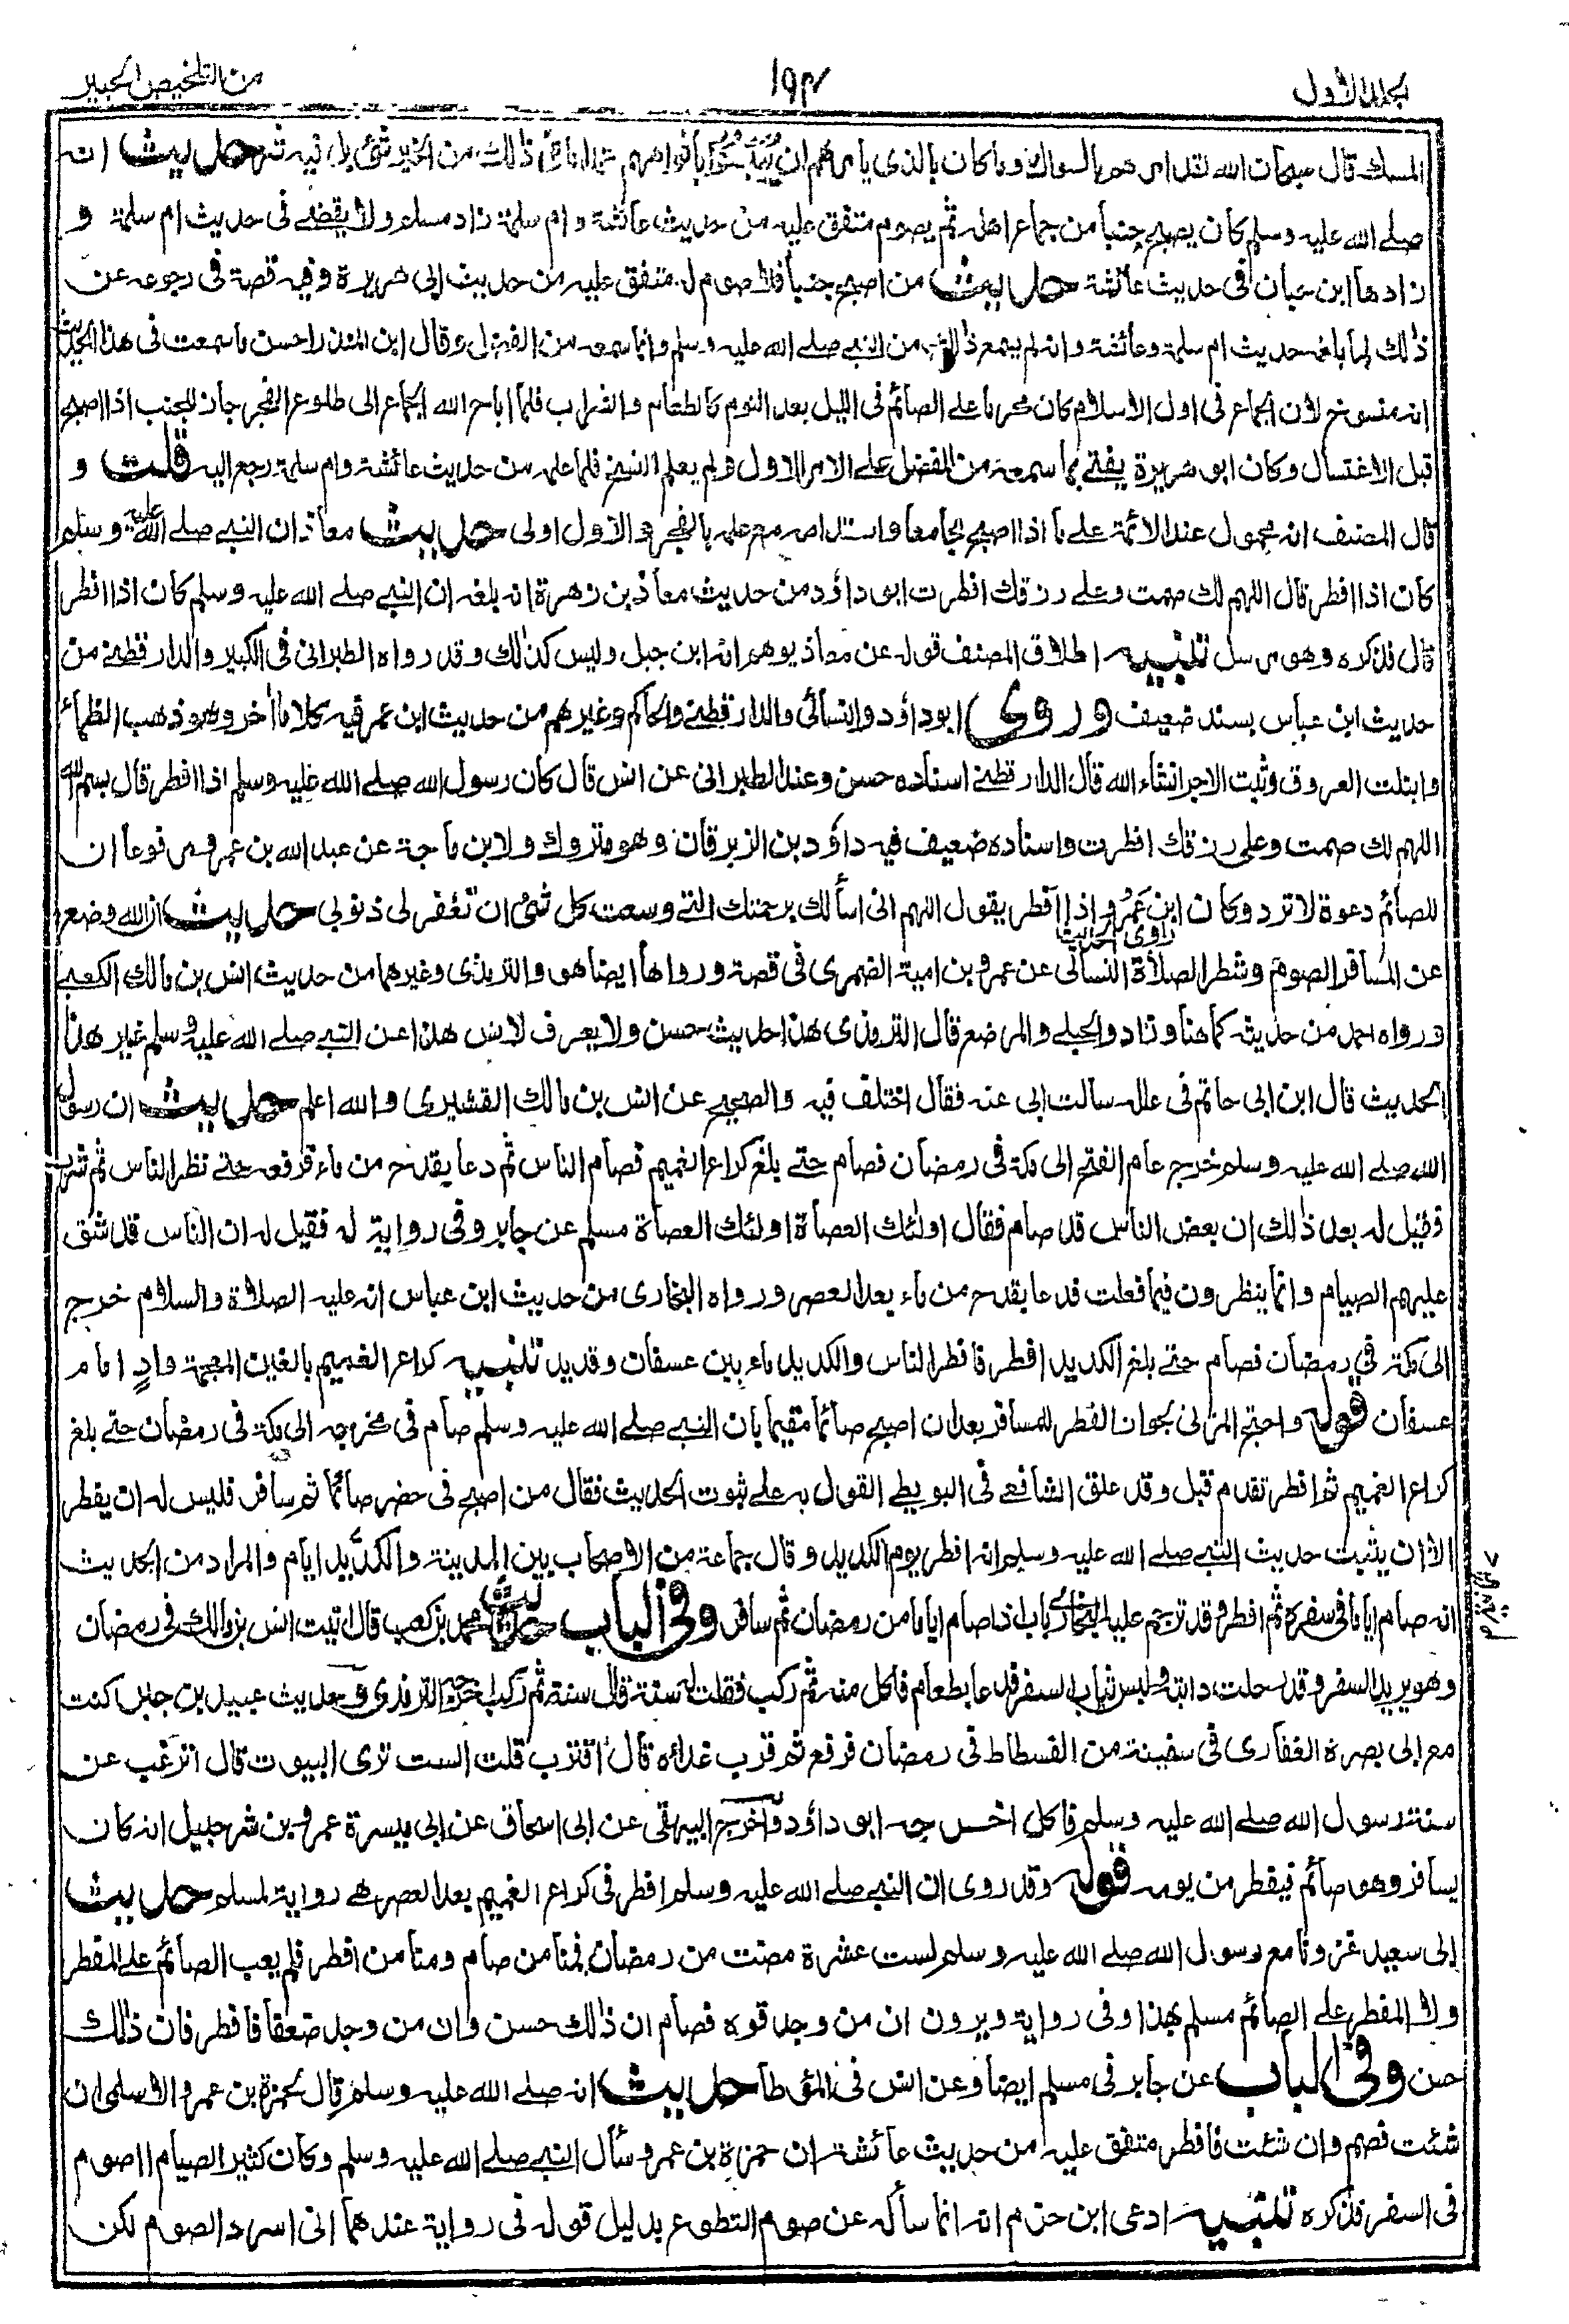 الجلد الاول
١٩٣
من التلخيص الحبير
المسك قال سبحان الله لقد امرهم بالسواك وما كان بالذى يامرهم ان بافواههم عمدا ما فى ذلك من الخير شئ بل فيه شر حديث انه
صلے الله عليه وسلم كان يصبح جنبا من جماع اهله ثم يصوم متفق عليه من حديث عائشة وام سلمة زاد مسلم ولا يقضے فى حديث ام سلمة و
زادها ابن حبان فى حديث عائشة حديث من اصبح جنبا فلا صوم له متفق عليه من حديث ابى هريرة وفيه قصة فى رجوعه عن
ذلك لما بلغه حديث ام سلمة وعائشة وانه لم يسمع ذلك من النبے صلے الله عليه وسلم وانما سمعه من الفضل وقال ابن المنذر احسن ما سمعت فى هذا الحديث
انه منسوخ لان الجماع فى اول الاسلام كان محرما على الصائم فى الليل بعد النوم كالطعام والشراب فلما اباح الله الجماع الى طلوع الفجر جاز للجنب اذا اصبح
قبل الاغتسال وكان ابو هريرة يفتے بما سمعه من الفضل علے الامر الاول ولم يعلم النسخ فلما علمه من حديث عائشة وام سلمة رجع اليه قلت و
قال المصنف انه محمول عند الائمة علے ما اذا اصبح مجامعا واستدامه مع علمه بالفجر والاول اولى حديث معاذ ان النبے صلے الله عليه وسلم
كان اذا افطر قال اللهم لك صمت وعلے رزقك افطرت ابو داؤد من حديث معاذ بن زهرة انه بلغه ان النبے صلے الله عليه وسلم كان اذا افطر
قال فذكره وهو مرسل تنبيه اطلاق المصنف قوله عن معاذ يوهم انه ابن جبل وليس كذلك وقد رواه الطبرانى فى الكبير والدارقطنے من
حديث ابن عباس بسند ضعيف وروى ابو داؤد والنسائى والدارقطنے والحاكم وغيرهم من حديث ابن عمر فيه كلاما آخر وهو ذهب الظماء
وابتلت العروق وثبت الاجر انشاء الله قال الدارقطنے اسناده حسن وعند الطبرانى عن انس قال كان رسول الله صلے الله عليه وسلم اذا افطر قال بسم الله
اللهم لك صمت وعلى رزقك افطرت واسناده ضعيف فيه داؤد بن الزبرقان وهو متروك ولابن ماجة عن عبد الله بن عمرو مرفوعا ان
للصائم دعوة لا ترد وكان ابن عمرو اذا افطر يقول اللهم انى اسألك برحمتك التے وسعت كل شئ ان تغفر لى ذنوبى حديث ان الله وضع
راوى الحديث
عن المسافر الصوم وشطر الصلاة النسائى عن عمرو بن امية الضمرى فى قصة ورواها ايضا هو والترمذى وغيرهما من حديث انس بن مالك الكعبے
ورواه احمد من حديثه كما هنا وزاد والحبلے والمرضع قال الترمذى هذا حديث حسن ولا يعرف لانس هذا عن النبے صلے الله عليه وسلم غير هذا
الحديث قال ابن ابى حاتم فى علله سالت ابى عنه فقال اختلف فيه والصحيح عن انس بن مالك القشيرى والله اعلم حديث ان رسول
الله صلے الله عليه وسلم خرج عام الفتح الى مكة فى رمضان فصام حتے بلغ كراع الغميم فصام الناس ثم دعا بقدح من ماء فرفعه حتے نظر الناس ثم شرب
فقيل له بعد ذلك ان بعض الناس قد صام فقال اولئك العصاة اولئك العصاة مسلم عن جابر وفى رواية له فقيل له ان الناس قد شق
عليهم الصيام وانما ينظرون فيما فعلت فدعا بقدح من ماء بعد العصر ورواه البخارى من حديث ابن عباس انه عليه الصلاة والسلام خرج
الى مكة فى رمضان فصام حتے بلغ الكديد افطر فافطر الناس والكديد ماء بين عسفان وقديد تنبيه كراع الغميم بالغين المعجمة وادٍ امام
عسفان قوله واحتج المزنى بجواز الفطر للمسافر بعد ان اصبح صائما مقيما بان النبے صلے الله عليه وسلم صام فى مخرجه الى مكة فى رمضان حتے بلغ
كراع الغميم ثم افطر تقدم قبل وقد علق الشافعے فى البويطے القول به علے ثبوت الحديث فقال من اصبح فى حضر صائما ثم سافر فليس له ان يفطر
الا ان يثبت حديث النبے صلے الله عليه وسلم انه افطر يوم الكديد وقال جماعة من الاصحاب بين المدينة والكديد ايام والمراد من الحديث
انه صام اياما فى سفره ثم افطر وقد ترجم عليه البخارى باب اذا صام اياما من رمضان ثم سافر وفى الباب حديث محمد بن كعب قال اتيت انس بن مالك فى رمضان
وهو يريد السفر وقد رحلت دابته ولبس ثياب السفر فدعا بطعام فاكل منه ثم ركب فقلت له سنة قال سنة ثم ركب اخرجه الترمذى وحديث عبيد بن جابر كنت
مع ابى بصرة الغفارى فى سفينة من الفسطاط فى رمضان فرفع ثم قرب غداؤه قال اقترب قلت الست ترى البيوت قال اترغب عن
سنة رسول الله صلے الله عليه وسلم فاكل اخرجه ابو داؤد واخرج البيهقى عن ابى اسحاق عن ابى ميسرة عمرو بن شرحبيل انه كان
يسافر وهو صائم فيفطر من يومه قوله وقد روى ان النبے صلے الله عليه وسلم افطر فى كراع الغميم بعد العصر هے رواية لمسلم حديث
ابى سعيد غزونا مع رسول الله صلے الله عليه وسلم لست عشرة مضت من رمضان فمنا من صام ومنا من افطر فلم يعب الصائم علے المفطر
ولا المفطر علے الصائم مسلم بهذا وفى رواية ويرون ان من وجد قوه فصام ان ذلك حسن وان من وجد ضعفا فافطر فان ذلك
حسن وفى الباب عن جابر فى مسلم ايضا وعن انس فى المؤطا حديث انه صلے الله عليه وسلم قال لحمزة بن عمرو الاسلمى ان
شئت فصم وان شئت فافطر متفق عليه من حديث عائشة ان حمزة بن عمرو سأل النبے صلے الله عليه وسلم وكان كثير الصيام ااصوم
فى السفر فذكره تنبيه ادعى ابن حزم انه انما سأله عن صوم التطوع بدليل قوله فى رواية عندهما انى اسرد الصوم لكن